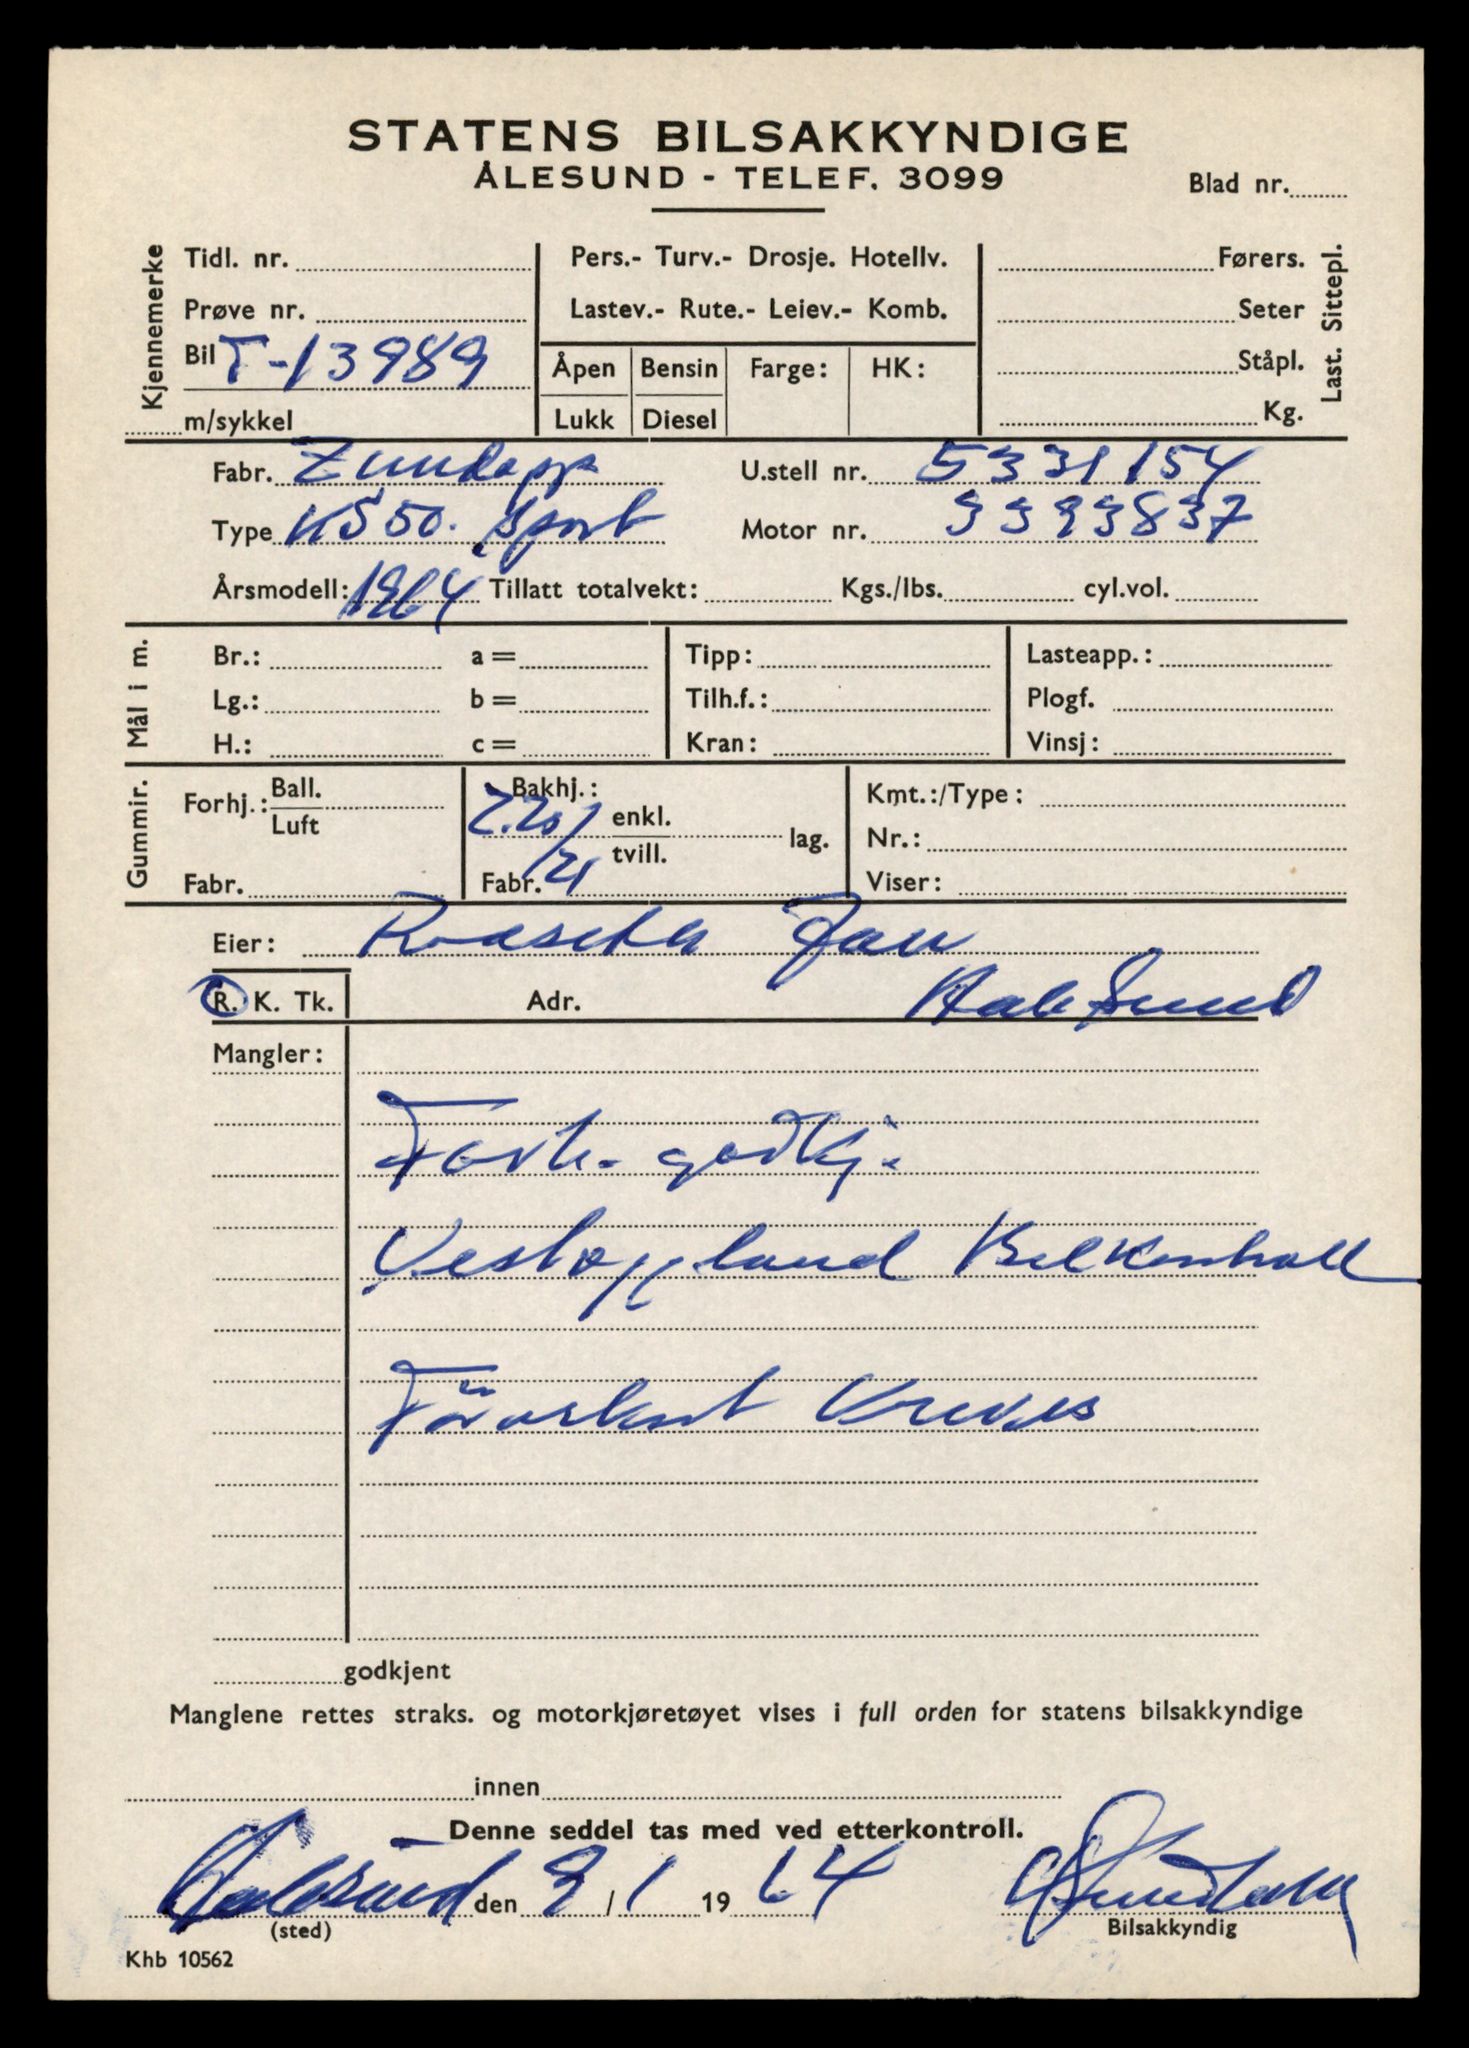 STATENS BILSAKKYNDIGE
ÅLESUND - TELEF. 3099
Blad nr.
Kjennemerke
Tidl. nr.
Prøve nr.
Bil T-13989
m/sykkel
Pers.- Turv.- Drosje. Hotellv.
Lastev.- Rute.- Leiev.- Komb.
Åpen Bensin Farge: HK:
Lukk Diesel
Førers.
Seter
Ståpl.
Kg.
Last. Sittepl.
Fabr. Zundapp U.stell nr. 5331154
Type KS50. Sport Motor nr. 3393837
Årsmodell: 1964 Tillatt totalvekt: Kgs./lbs. cyl.vol.
Mål i m.
Br.: a = Tipp: Lasteapp.:
Lg.: b = Tilh.f.: Plogf.
H.: c = Kran: Vinsj:
Gummir.
Forhj.: Ball. Luft
Fabr.
Bakhj.: enkl. tvill. lag.
2.20/21
Fabr.
Kmt.:/Type:
Nr.:
Viser:
Eier: Jan
R. K. Tk. Adr. Aalesund
Mangler:
Forh. godkj.
Vestoppland Bilkontroll
Förarkort
godkjent
Manglene rettes straks. og motorkjøretøyet vises i full orden for statens bilsakkyndige
innen
Denne seddel tas med ved etterkontroll.
Aalesund den 9/1 19 64
(sted) Bilsakkyndig
Khb 10562